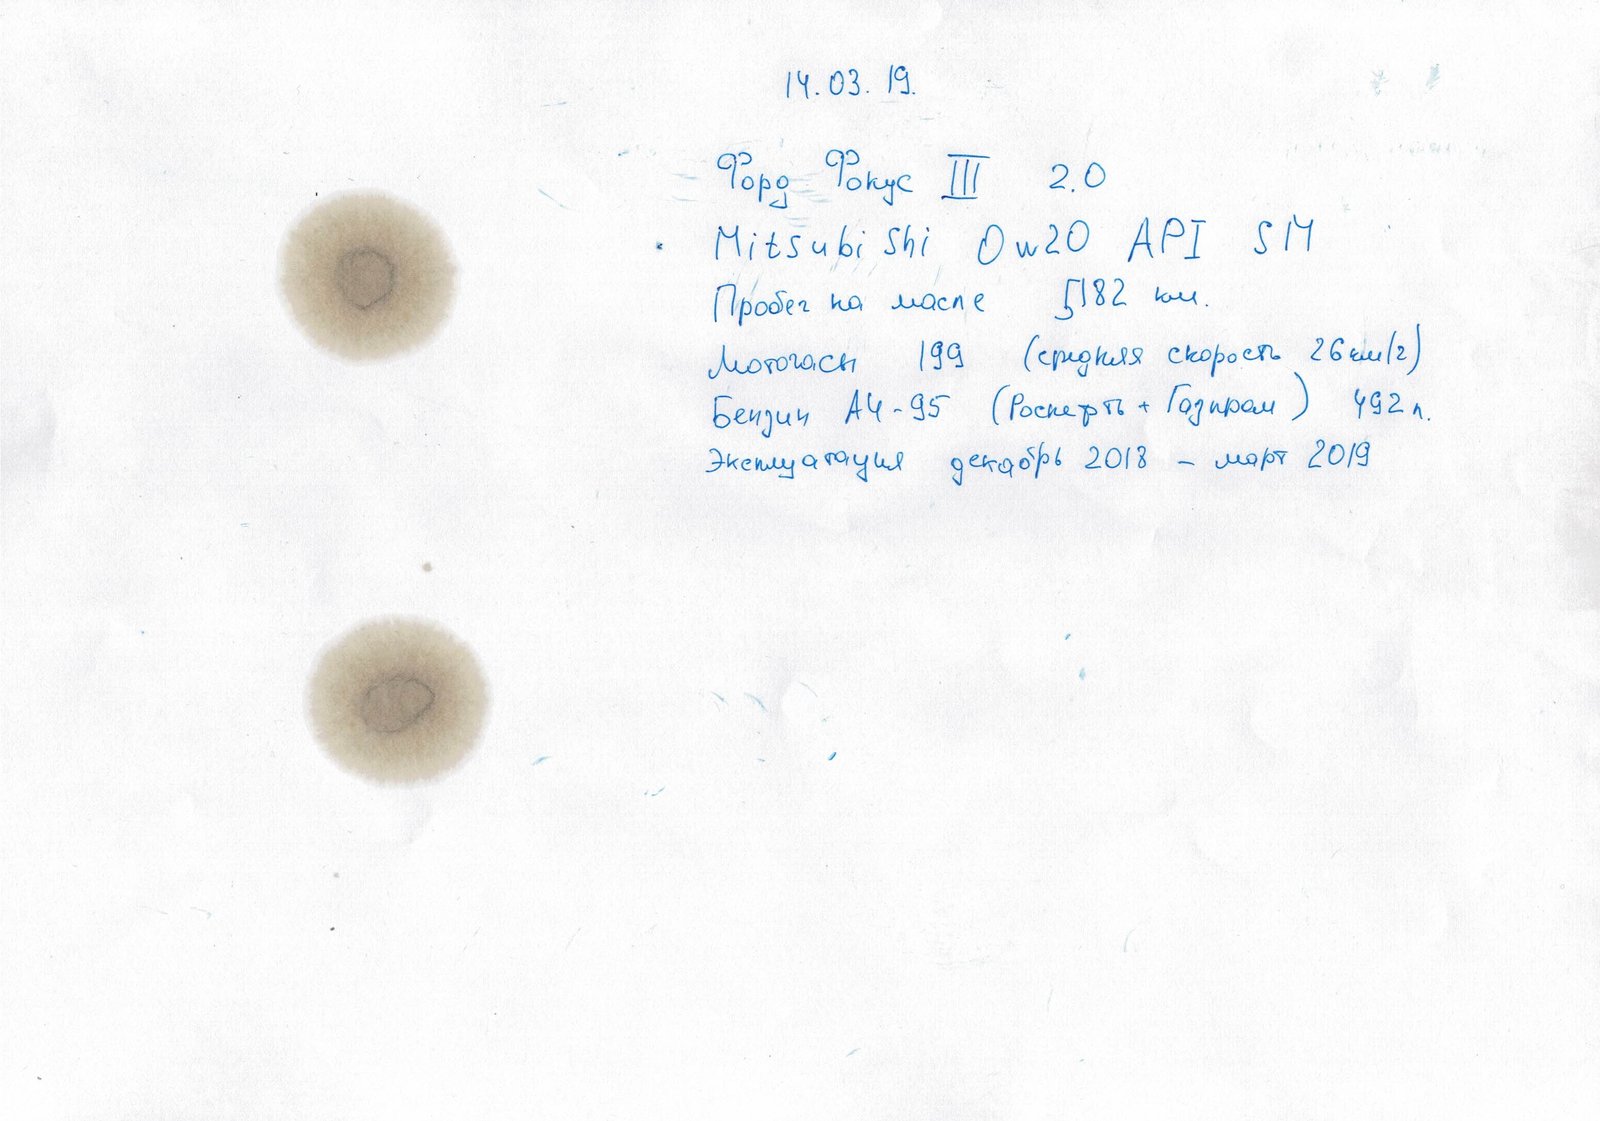 14.03.19.
Форд Фокус III 2.0
Mitsubishi 0w20 API SM
Пробег на масле 5182 км.
Моточасы 199 (средняя скорость 26 км/г)
Бензин АИ-95 (Роснефть + Газпром) 492 л.
Эксплуатация декабрь 2018 - март 2019